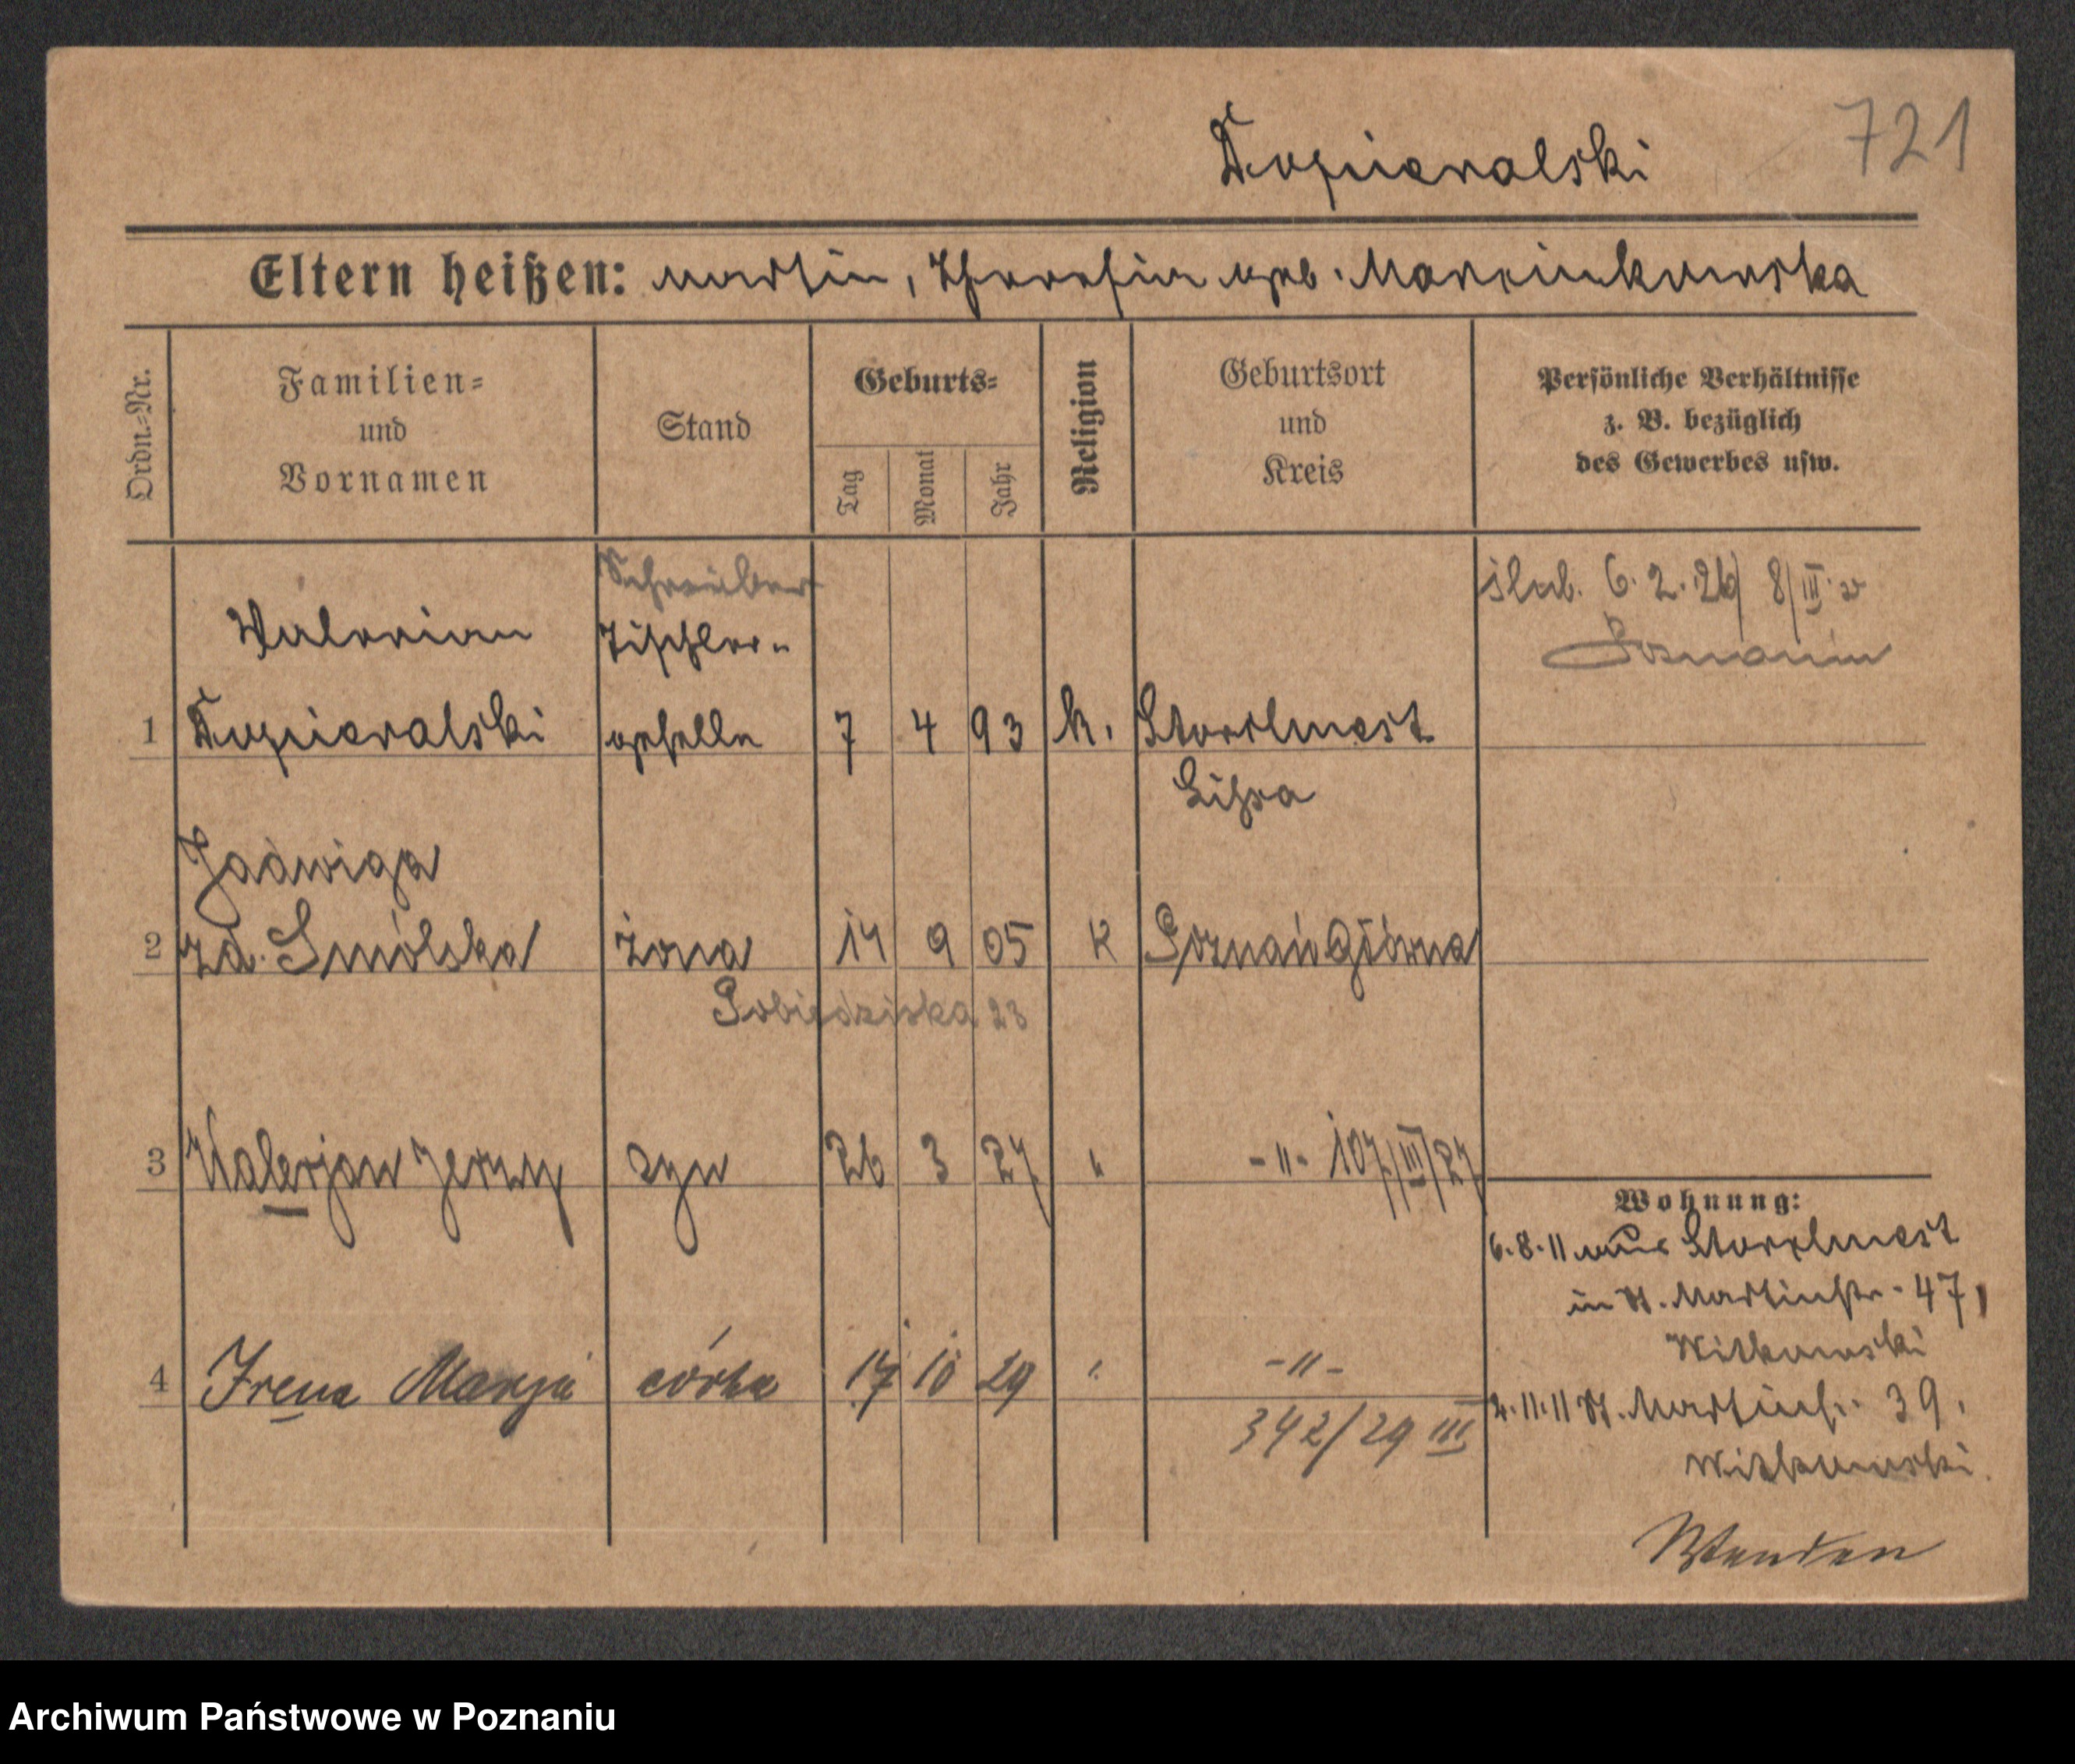 721
Topieralski
Eltern heißen: Martin, Theresia geb. Marcinkowska
Ordn.=Nr.
Familien=
und
Vornamen
Stand
Geburts=
Tag
Monat
Jahr
Religion
Geburtsort
und
Kreis
Persönliche Verhältnisse
z. B. bezüglich
des Gewerbes usw.
Schreiber
ślub. 6.2.26 8/III
Valerian
Tischler-
Poznaniu
1 Topieralski geselle 7 4 93 k. Storchnest
Lissa
Jadwiga
2 zd. Smólska żona 14 9 05 K Poznań Główna
Pobiedziska 23
3 Walerjan Jerzy syn 26 3 27 " -"- 107/III/27
Wohnung:
6.8.11 aus Storchnest
in St. Martinstr. 47,
Witkowski
4 Irena Marja córka 17 10 29 " -"-
342/29 III
2.11.11 St. Martinstr. 39.
Witkowski.
Wenden
Archiwum Państwowe w Poznaniu